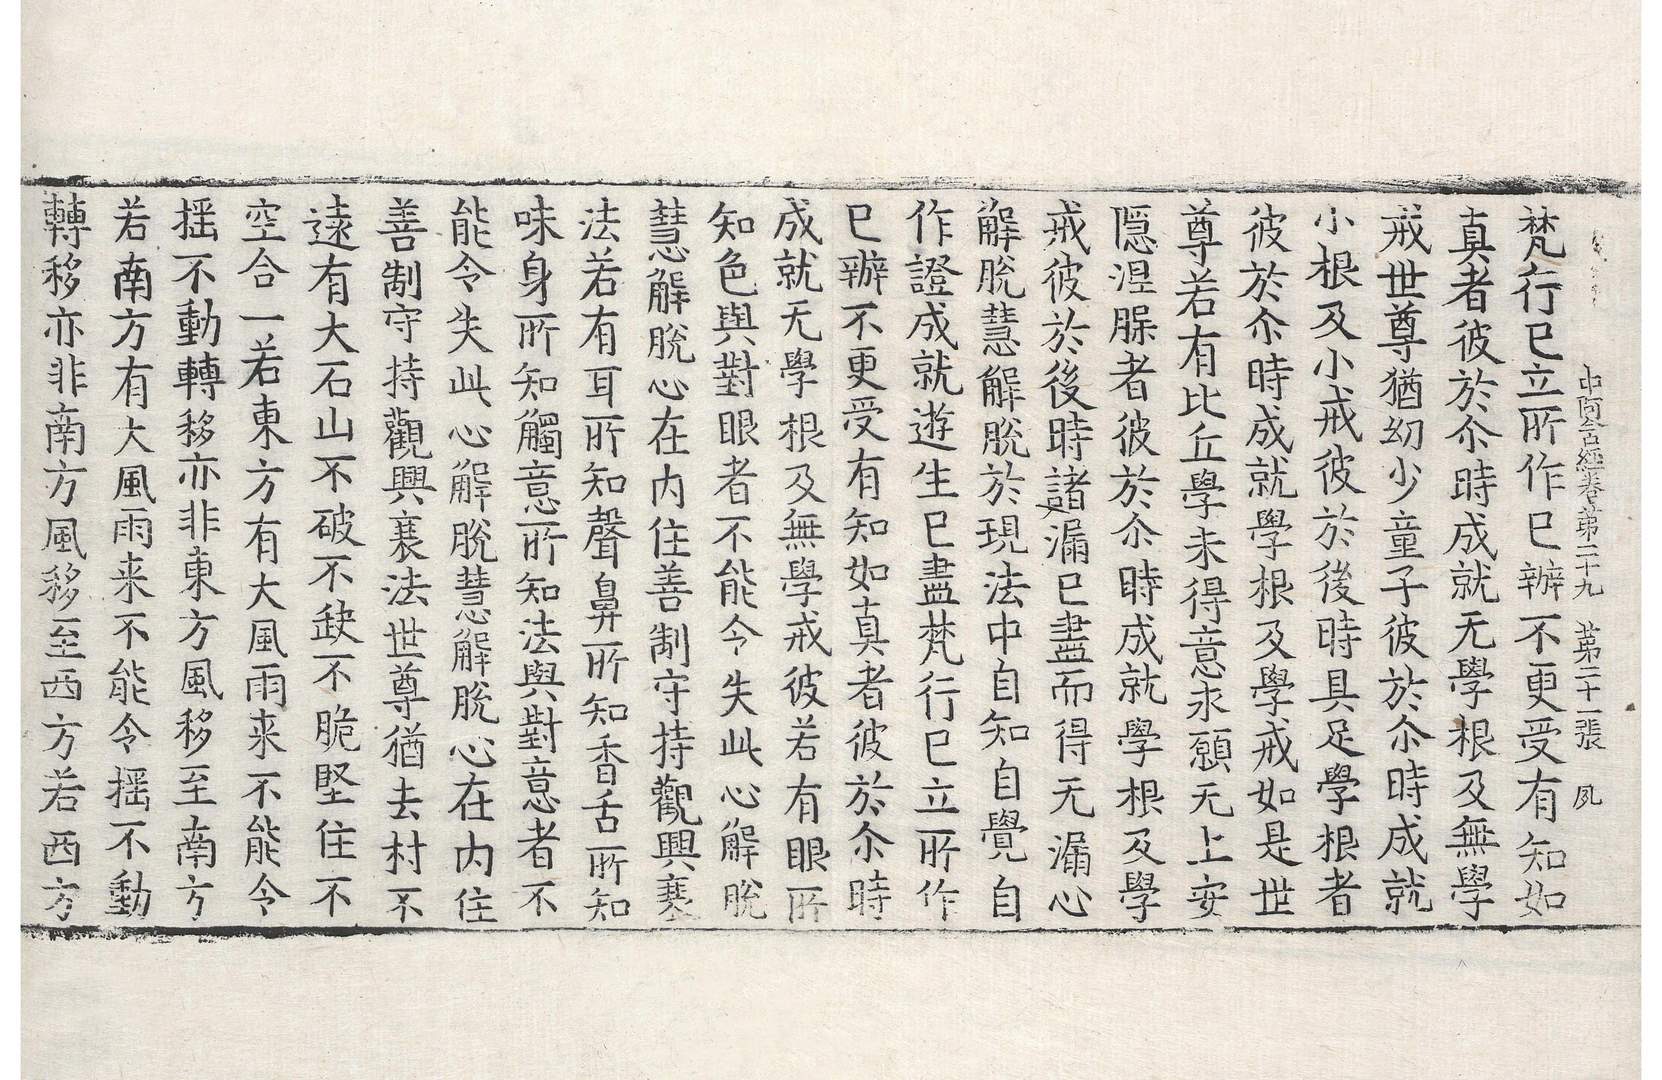 中阿含經卷第二十九　第二十一張　夙
梵行已立所作已辦不更受有知如
真者彼於尒時成就无學根及無學
戒世尊猶幼少童子彼於尒時成就
小根及小戒彼於後時具足學根者
彼於尒時成就學根及學戒如是世
尊若有比丘學未得意求願无上安
隱涅槃者彼於尒時成就學根及學
戒彼於後時諸漏已盡而得无漏心
解脫慧解脫於現法中自知自覺自
作證成就遊生已盡梵行已立所作
已辦不更受有知如真者彼於尒時
成就无學根及無學戒彼若有眼所
知色與對眼者不能令失此心解脫
慧解脫心在内住善制守持觀興衰
法若有耳所知聲鼻所知香舌所知
味身所知觸意所知法與對意者不
能令失此心解脫慧解脫心在内住
善制守持觀興衰法世尊猶去村不
遠有大石山不破不缺不脆堅住不
空合一若東方有大風雨来不能令
揺不動轉移亦非東方風移至南方
若南方有大風雨来不能令揺不動
轉移亦非南方風移至西方若西方